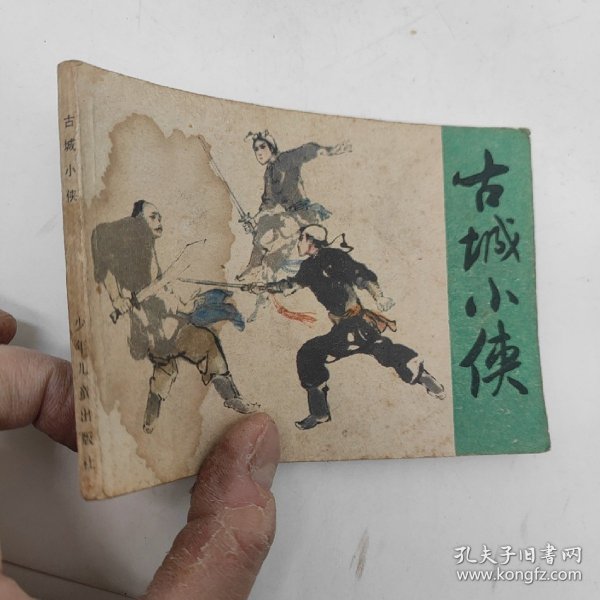 古城小侠
少年儿童出版社
古城小侠
孔夫子旧书网
www.kongfz.com